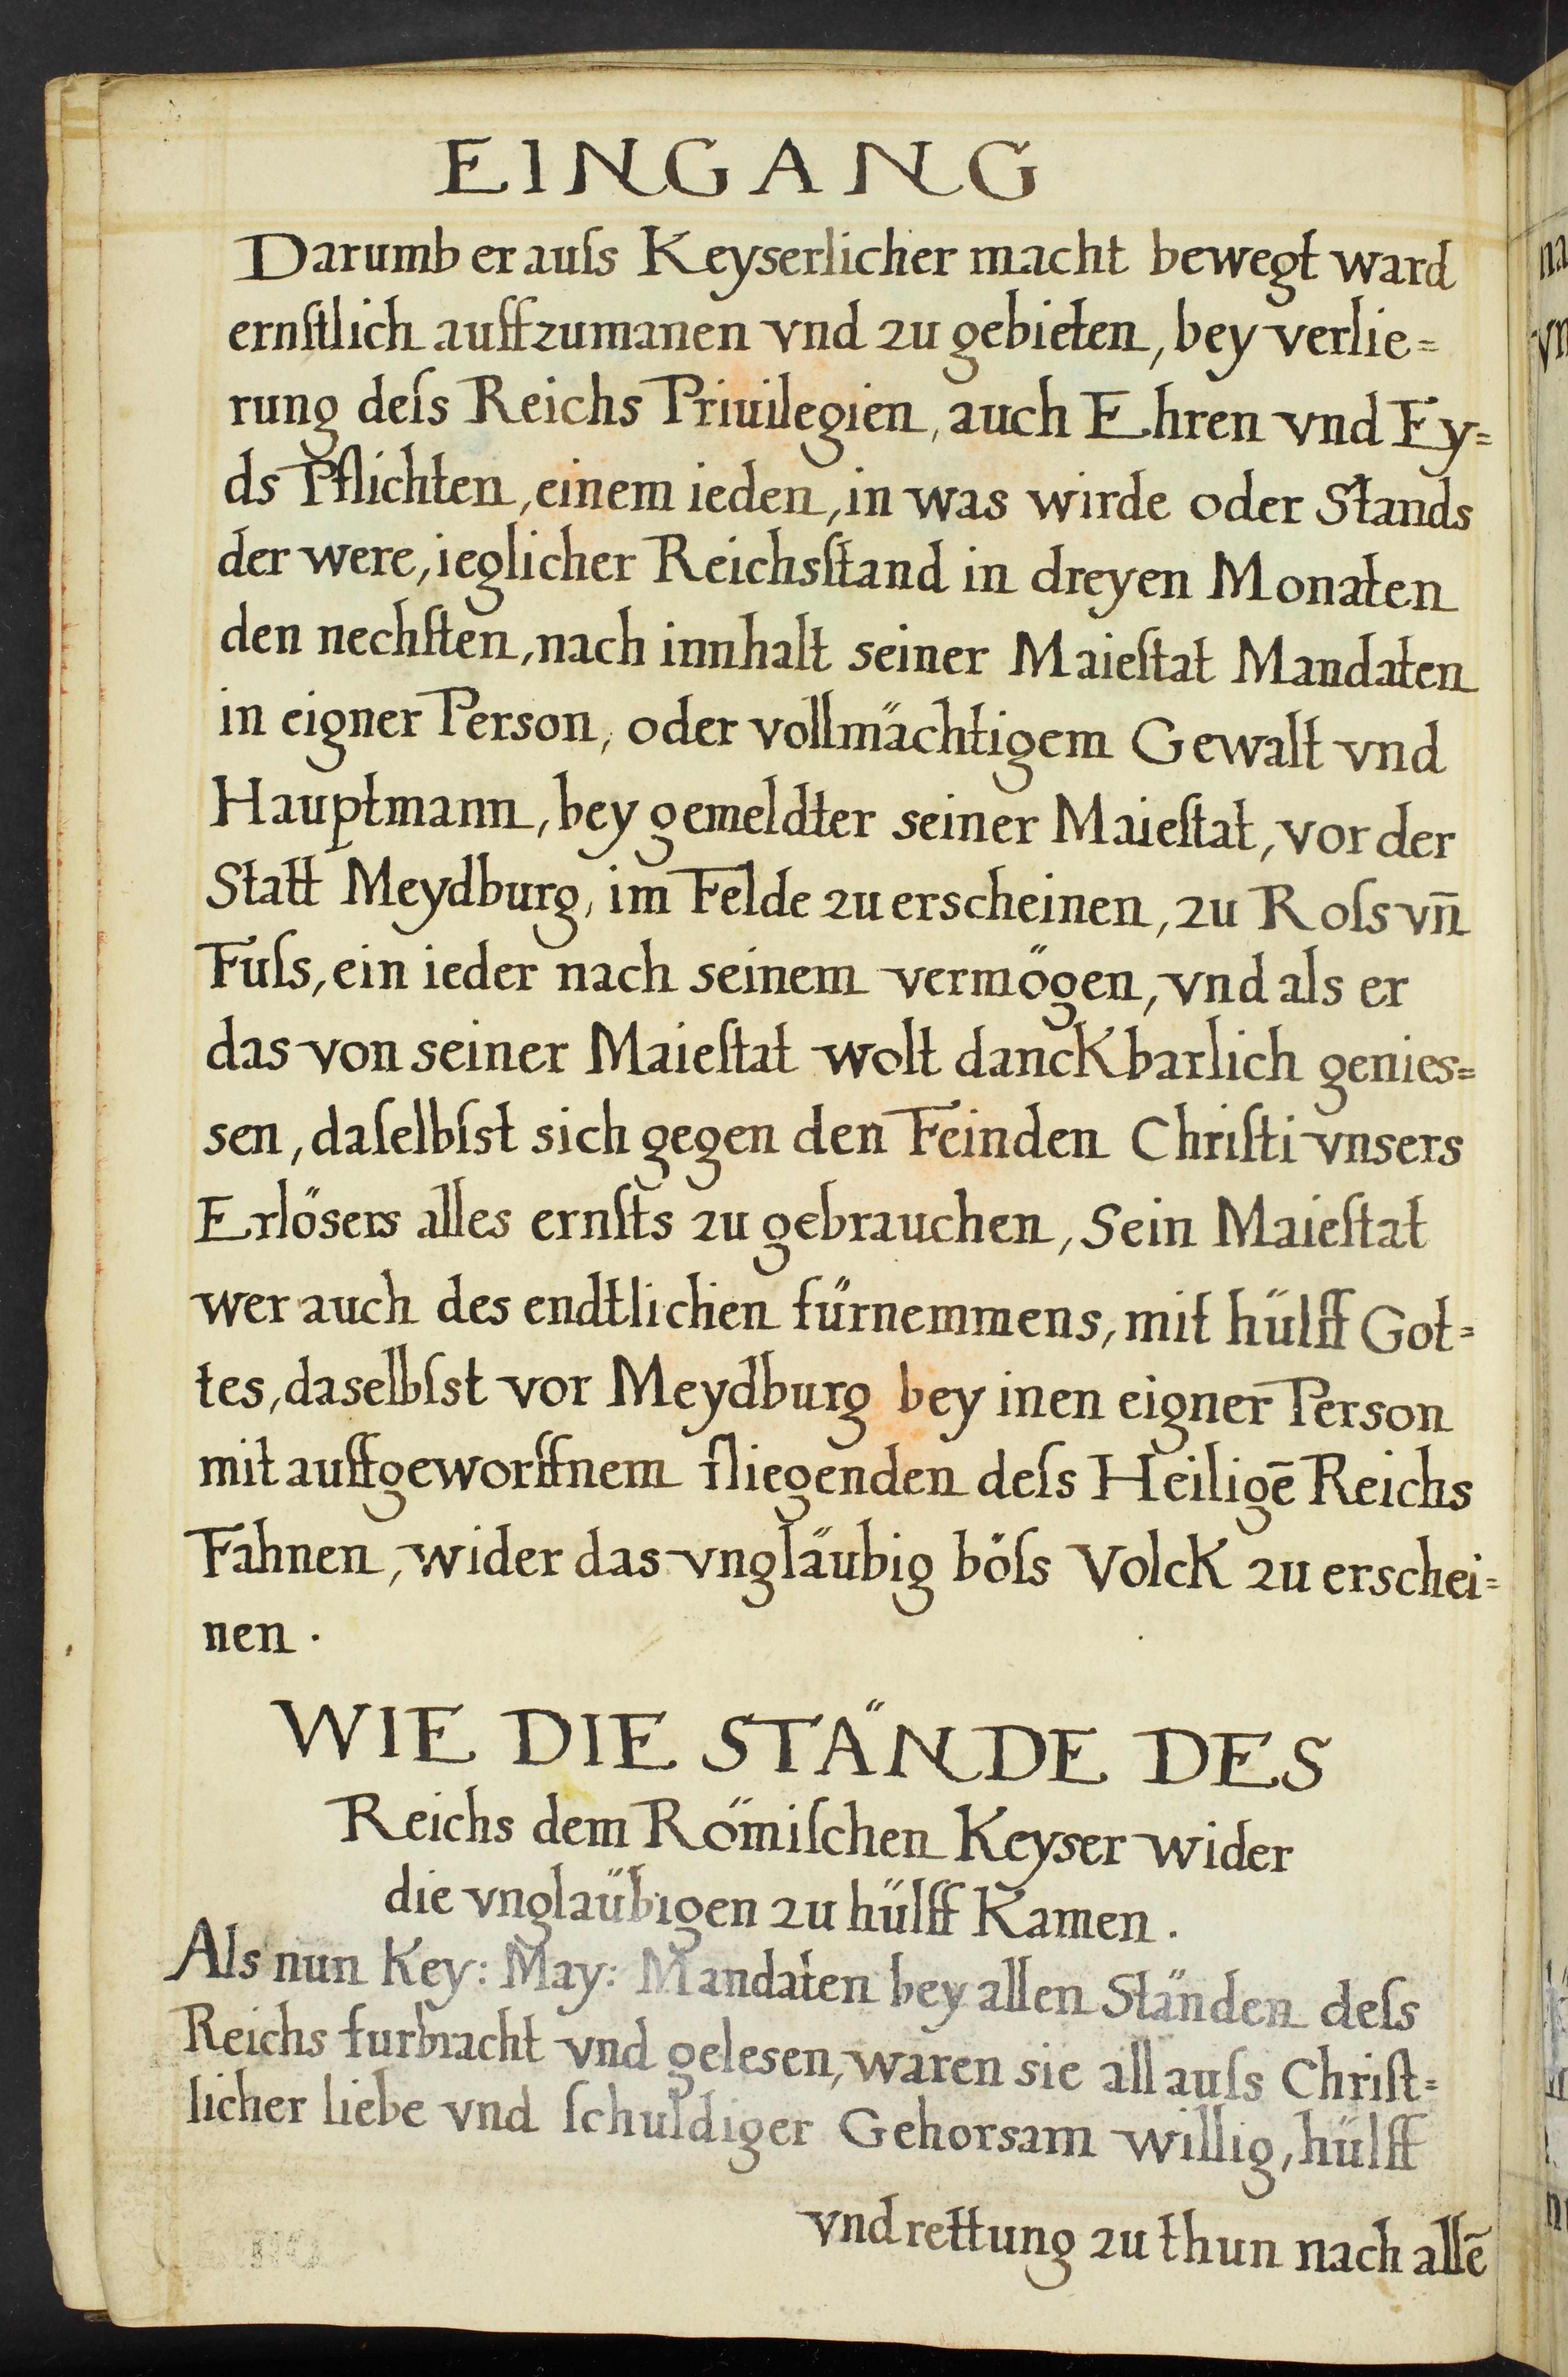 EINGANG
Darumb er auſs Keyserlicher macht bewegt ward
ernſtlich auffzumanen vnd zu gebieten, bey verlie=
rung deſs Reichs Priuilegien, auch Ehren vnd Ey=
ds Pflichten, einem ieden, in was wirde oder Stands
der were, ieglicher Reichsſtand in dreyen Monaten
den nechſten, nach innhalt seiner Maieſtat Mandaten
in eigner Person, oder vollmächtigem Gewalt vnd
Hauptmann, bey gemeldter seiner Maieſtat, vor der
Statt Meydburg, im Felde zu erscheinen, zu Roſs vn̄
Fuſs, ein ieder nach seinem vermögen, vnd als er
das von seiner Maieſtat wolt danckbarlich genies=
sen, daſelbſst sich gegen den Feinden Chriſti vnsers
Erlösers alles ernſts zu gebrauchen, Sein Maieſtat
wer auch des endtlichen fürnemmens, mit hülff Got=
tes, daselbſst vor Meydburg bey inen eigner Person
mit auffgeworffnem fliegenden deſs Heiligē Reichs
Fahnen, wider das vngläubig böſs Volck zu erschei=
nen.
WIE DIE STÄNDE DES
Reichs dem Römiſchen Keyser wider
die vnglaübigen zu hülff Kamen.
Als nun Key: May: Mandaten bey allen Ständen deſs
Reichs furbracht vnd gelesen, waren sie all auſs Chriſt=
licher liebe vnd ſchuldiger Gehorsam willig, hülff
vnd rettung zu thun nach allē